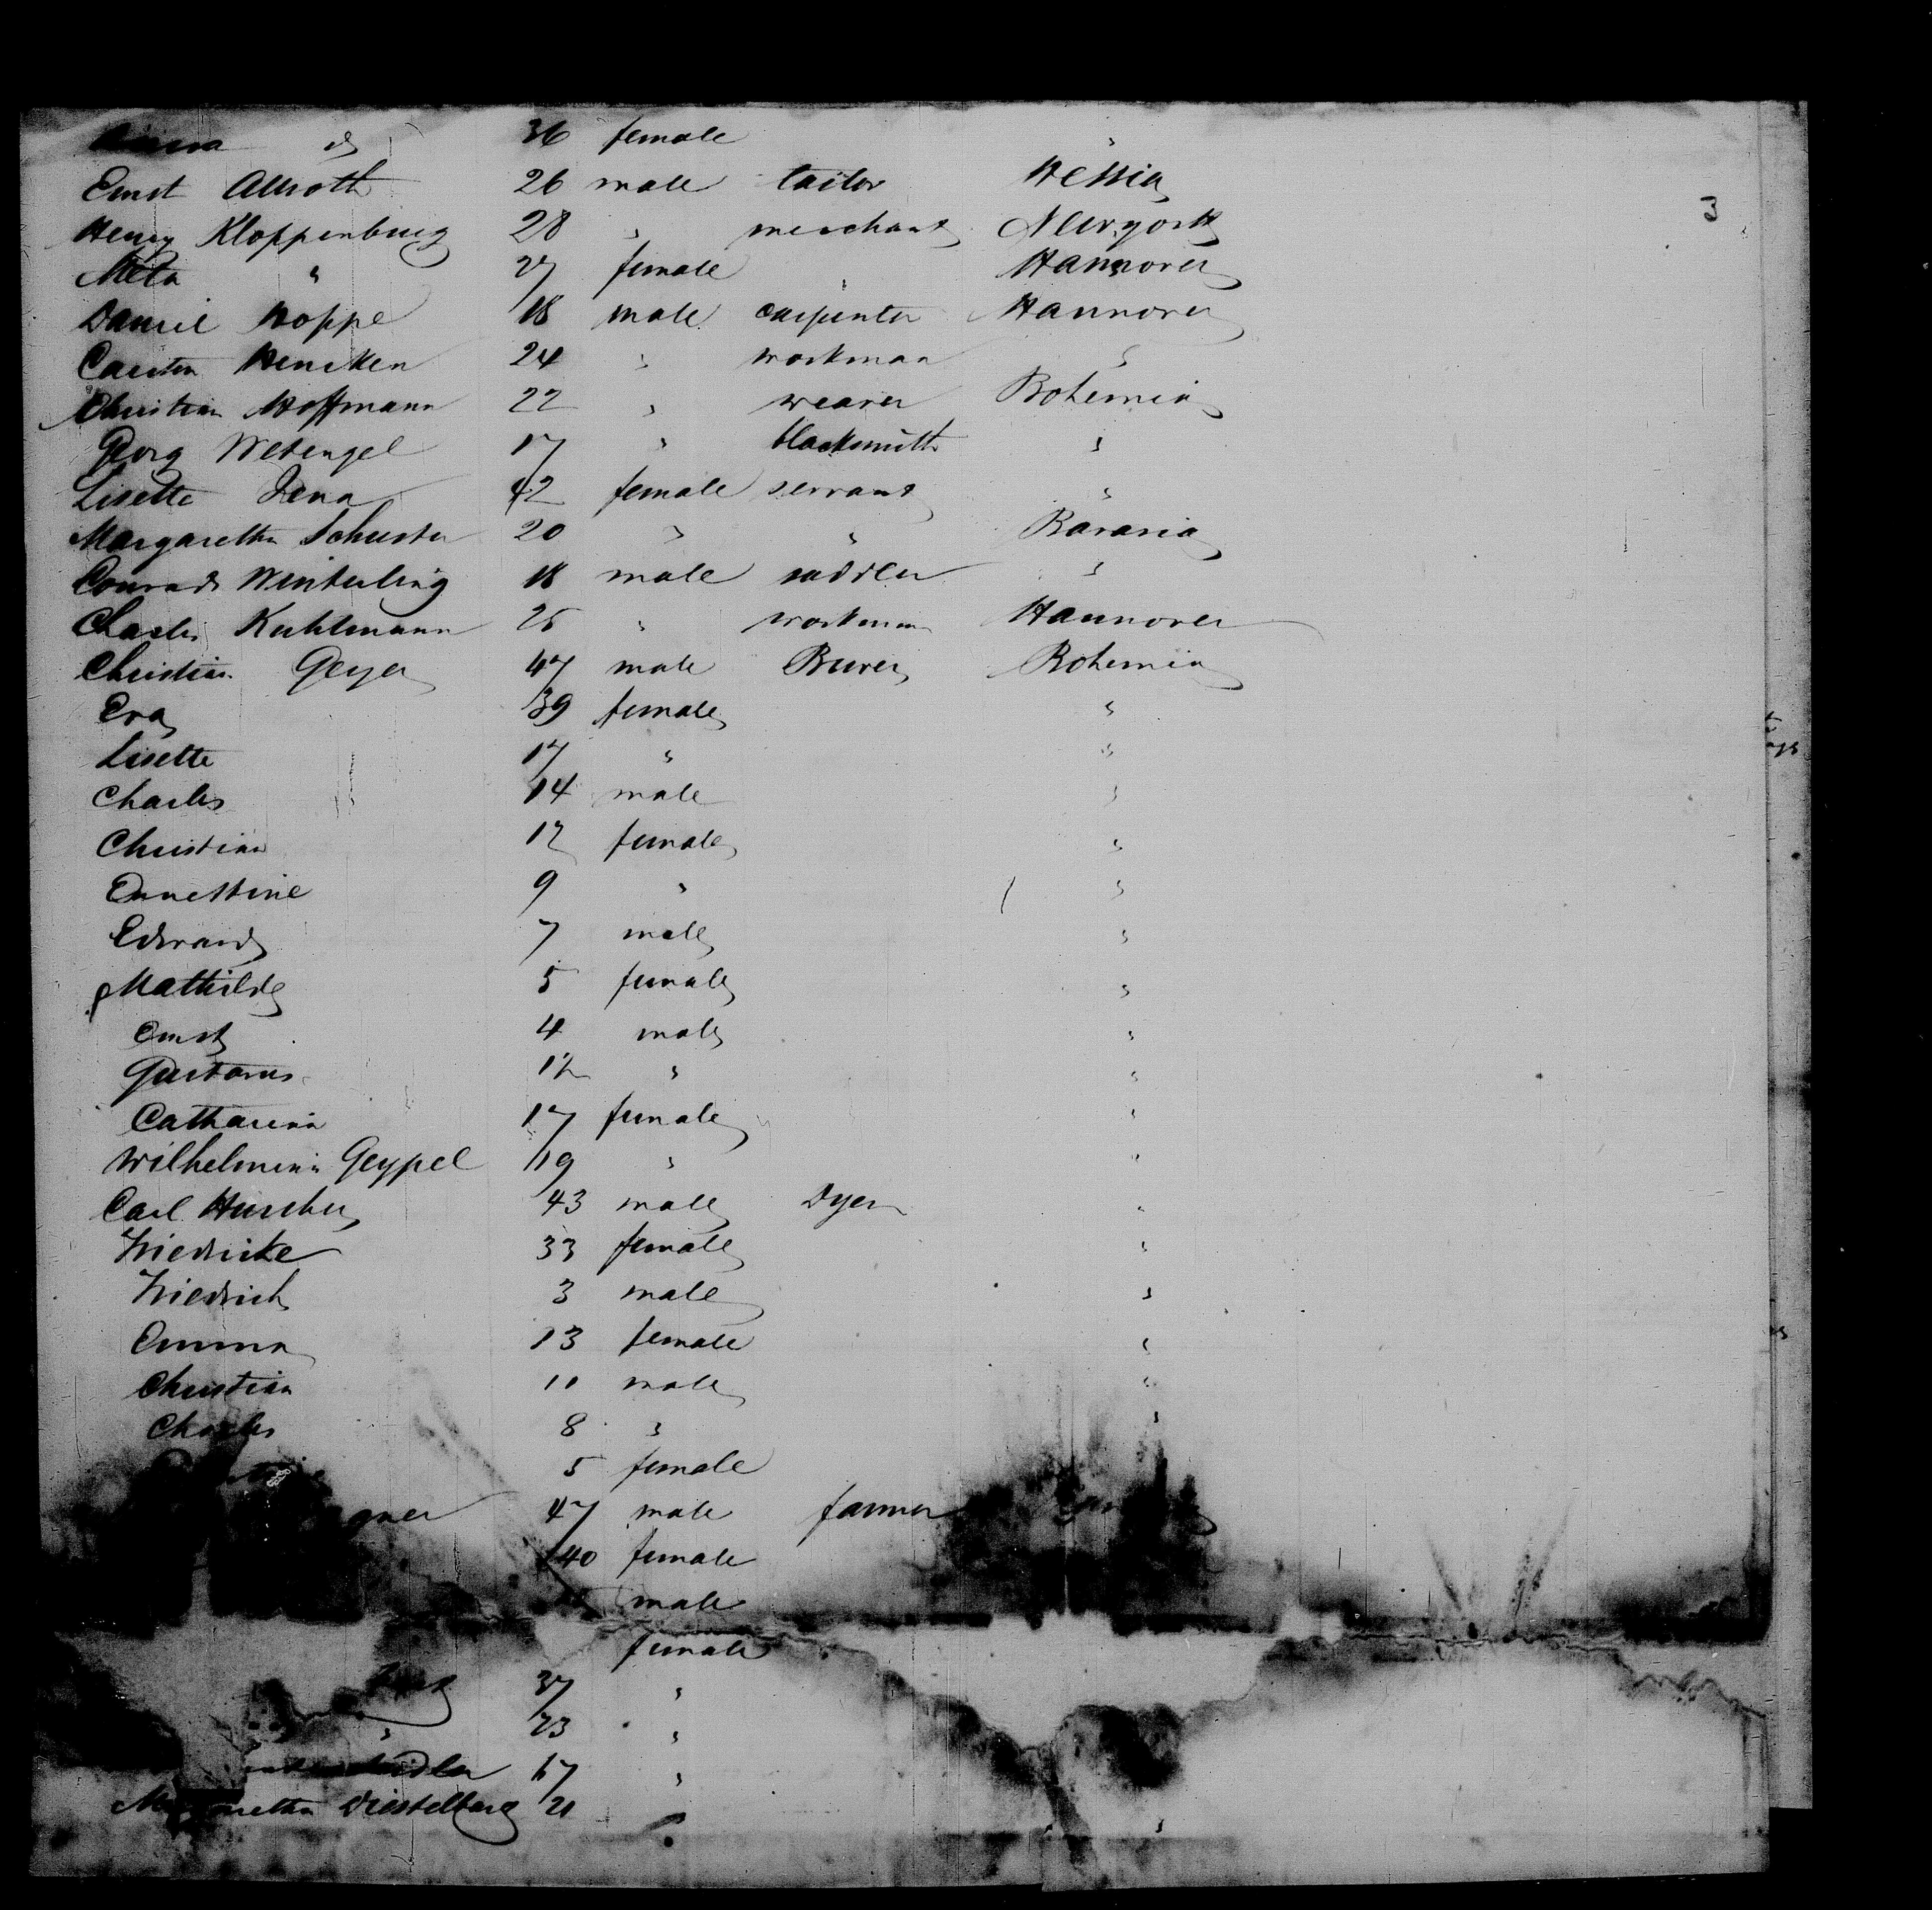 do 36 female "
Ernst Allroth 26 male tailor Hessia
3
Henry Kloppenburg 28 " merchant Newyork
Meta " 27 female " Hannover
Daniel Hoppe 18 male carpenter Hannover
Carsten Hencken 24 " workman "
Christian Hoffmann 22 " weaver Bohemia
Georg Wetengel 17 " blacksmith "
Lisette Jena 42 female servant "
Margaretha Schuster 20 " " Bavaria
Conrad Winterling 18 male saddler "
Charles Kuhlmann 25 " workman Hannover
Christian Geyer 47 male Bohemia
Eva 39 female "
Lisette 17 " "
Charles 14 male "
Christian 12 female "
Ernestine 9 " "
Edward 7 male "
Mathilde 5 female "
Ernst 4 male "
Gustavus "  "
Catharina 17 female "
Wilhelmina Geypel 19 " "
Carl 43 male Dyer "
Friedricke 33 female "
Friedrich 3 male "
Emma 13 female "
Christian 11 male "
Charles 8 " "
5 female
47 male farmer
40 female
male
female
37 "
23 "
17 "
Diestelberg 21 "